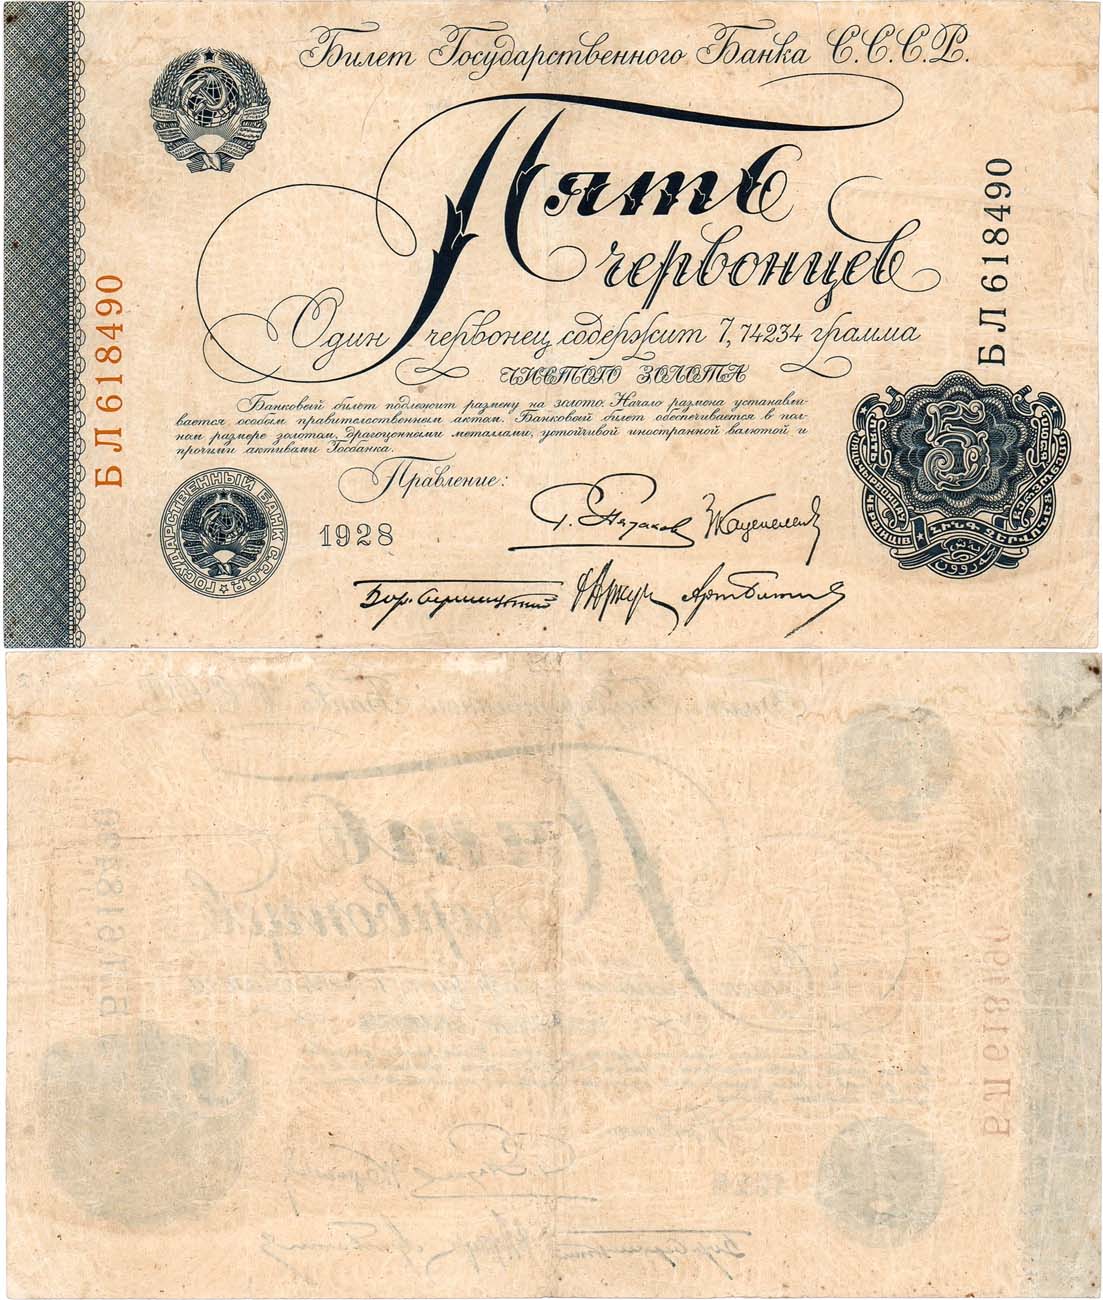 Билет Государственного Банка С.С.С.Р.
Пять
червонцев
Один червонец содержит 7,74234 грамма
чистого золота
Банковый билет подлежит размену на золото. Начало размена устанавли-
вается особым правительственным актом. Банковый билет обеспечивается в пол-
ном размере золотом, драгоценными металлами, устойчивой иностранной валютой и
прочими активами Госбанка.
Правление:
1928
ГОСУДАРСТВЕННЫЙ БАНК С.С.С.Р.
БЛ 618490
БЛ 618490
5
ПЯТЬ
ЧЕРВОНЦЕВ
ЧЕРВАНЦІВ
ՀԻՆԳ ՉԵՐՎՈՆԵՑ
БЛ 618490